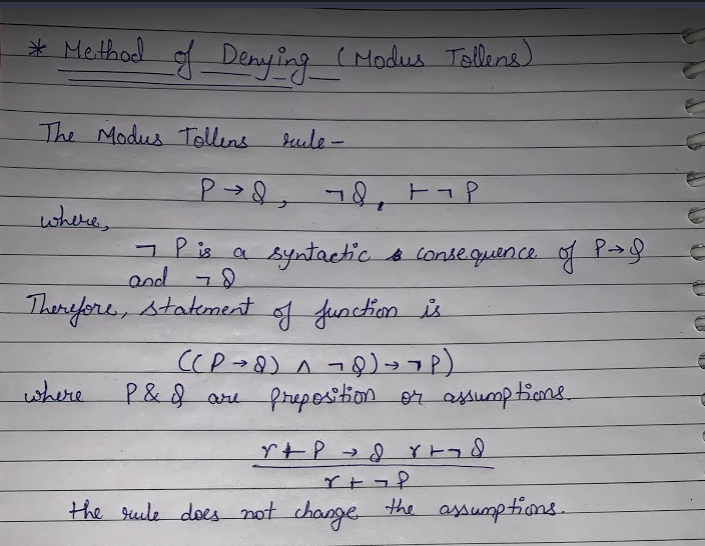 * Method of Denying (Modus Tollens)
The Modus Tollens rule -
P → Q, ¬Q, ⊢ ¬P
where,
¬ P is a syntactic consequence of P→Q
and ¬Q
Therefore, statement of function is
((P→Q) ∧ ¬Q) → ¬P)
where P & Q are preposition or assumptions.
r ⊢ P → Q r ⊢ ¬Q
r ⊢ ¬P
the rule does not change the assumptions.